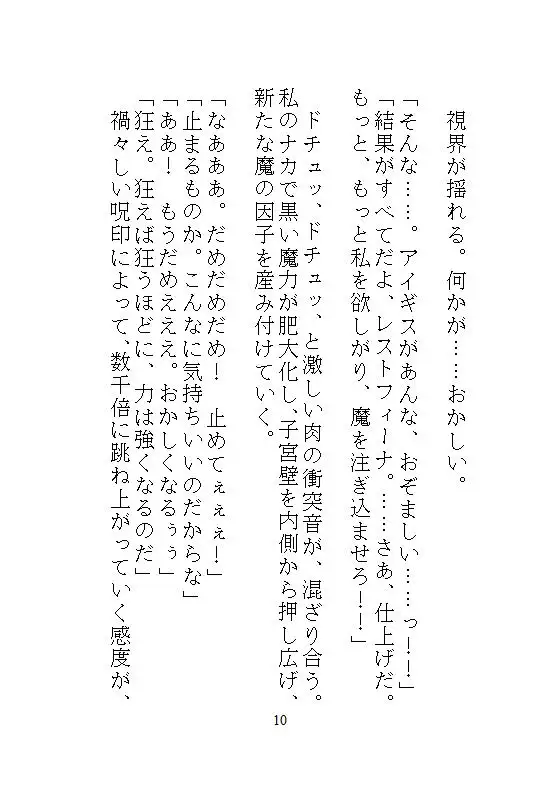 視界が揺れる。何かが……おかしい。
「そんな……。アイギスがあんな、おぞましい……っ！！」
「結果がすべてだよ、レストフィーナ。……さあ、仕上げだ。
もっと、もっと私を欲しがり、魔を注ぎ込ませろ！！」
ドチュッ、ドチュッ、と激しい肉の衝突音が、混ざり合う。
私のナカで黒い魔力が肥大化し、子宮壁を内側から押し広げ、
新たな魔の因子を産み付けていく。
「なあああ。だめだめだめ！　止めてぇぇぇ！」
「止まるものか。こんなに気持ちいいのだからな」
「ああ！　もうだめえええ。おかしくなるぅぅ」
「狂え。狂えば狂うほどに、力は強くなるのだ」
禍々しい呪印によって、数千倍に跳ね上がっていく感度が、
10